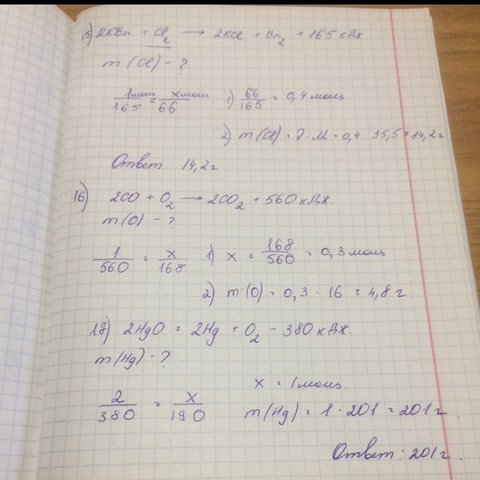 15) 2KBr + Cl₂ → 2KCl + Br₂ + 165 кДж
m (Cl) - ?
1моль/165 = xмоль/66 1) 66/165 = 0,4 моль
2) m(Cl) = ν · M = 0,4 · 35,5 = 14,2г
Ответ 14,2г
16) 2CO + O₂ → 2CO₂ + 560 кДж.
m (O) - ?
1/560 = x/168 1) x = 168/560 = 0,3 моль
2) m (O) = 0,3 · 16 = 4,8 г
17) 2HgO = 2Hg + O₂ - 380 кДж.
m (Hg) - ?
x = 1 моль.
2/380 = x/190 m(Hg) = 1 · 201 = 201 г.
Ответ: 201 г.